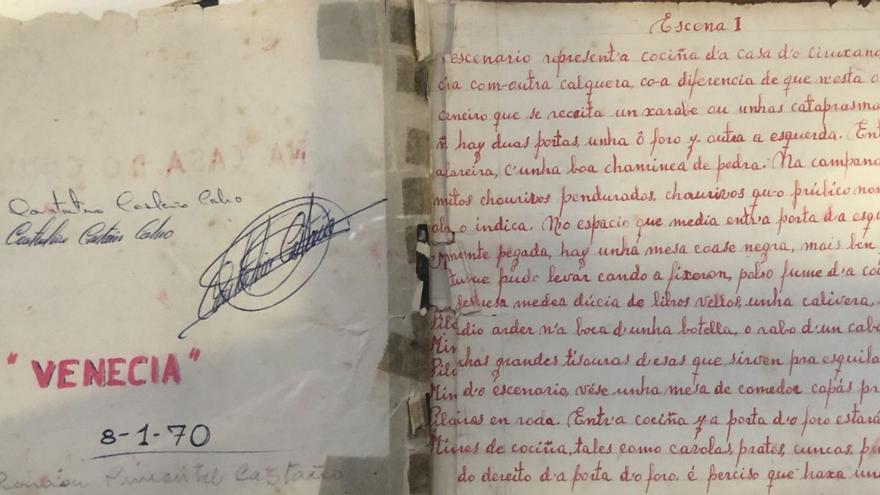 Castaño Calvo
Castaño Calvo
"VENECIA"
8-1-70
Pimentel Castaño
Escena I
escenario representa cociña d'a casa d'o Ciruxan
cia com-outra calquera, co-a diferencia de que n'esta o
aneiro que se receita un xarabe ou unhas cataprasma
ñ hay duas portas, unha ô foro y outra a esquerda. Ent
alareira, c'unha boa chaminea de pedra. Na campan
mitos chourizos pendurados, chourizos qu-o prúbico non
o indica. N-o espacio que media entr'a porta d'a esqu
mente pegada, hay unha mesa coase negra, mais ben
pudo levar cando a fixeron, polo fume d'a co
mesa medea dúcia de libros vellos, unha calivera,
dio arder n'a boca d'unha botella, o rabo d'un cab
chas grandes tisouras d'esas que sirven pra esquila
d'o escenario, vése unha mesa de comedor capás pr
en roda. Entr'a cociña y-a porta d'o foro estará
de cociña, tales como cazolas, pratos, cuncas, p
do dereito d'a porta d'o foro, é perciso que haxa un